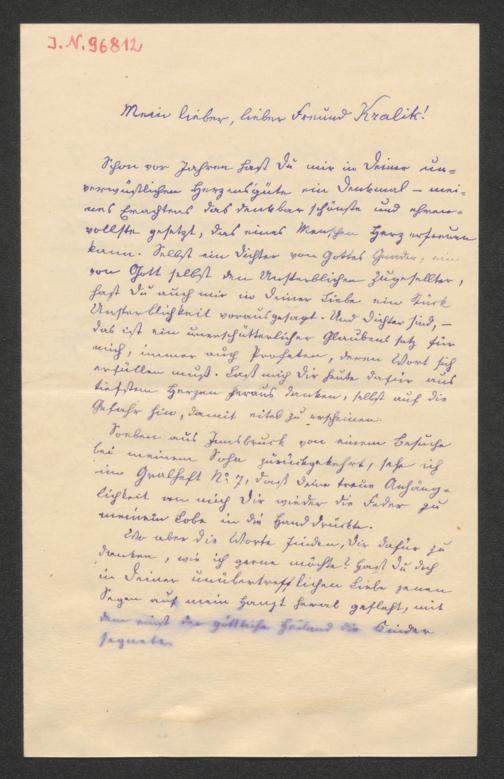 J.N. 96812
Mein lieber, lieber Freund Kralik!
Schon vor Jahren hast Du mir in Deiner un=
verwüstlichen Herzensgüte ein Denkmal – mei=
nes Erachtens das denkbar schönste und ehren=
vollste gesetzt, das eines Menschen Herz erfreuen
kann. Selbst ein Dichter von Gottes Gnaden, ein
von Gott selbst den Unsterblichen zugesellter,
hast Du auch mir in Deiner Liebe ein Stück
Unsterblichkeit vorausgesagt. Und Dichter sind, –
das ist ein unerschütterlicher Glaubenssatz für
mich, immer auch Propheten, deren Wort sich
erfüllen muß. Laß mich Dir heute dafür aus
tiefstem Herzen heraus danken, selbst auf die
Gefahr hin, damit eitel zu erscheinen.
Soeben aus Innsbruck von einem Besuche
bei meinem Sohn zurückgekehrt, sehe ich
im Gralheft Nr 7, daß Deine treue Anhäng=
lichkeit an mich Dir wieder die Feder zu
meinem Lobe in die Hand drückte.
Wo aber die Worte finden, Dir dafür zu
danken, wie ich gerne möchte? Hast Du doch
in Deiner unübertrefflichen Liebe jenen
Segen auf mein Haupt herab gefleht, mit
dem einst der göttliche Heiland die Kinder
segnete.